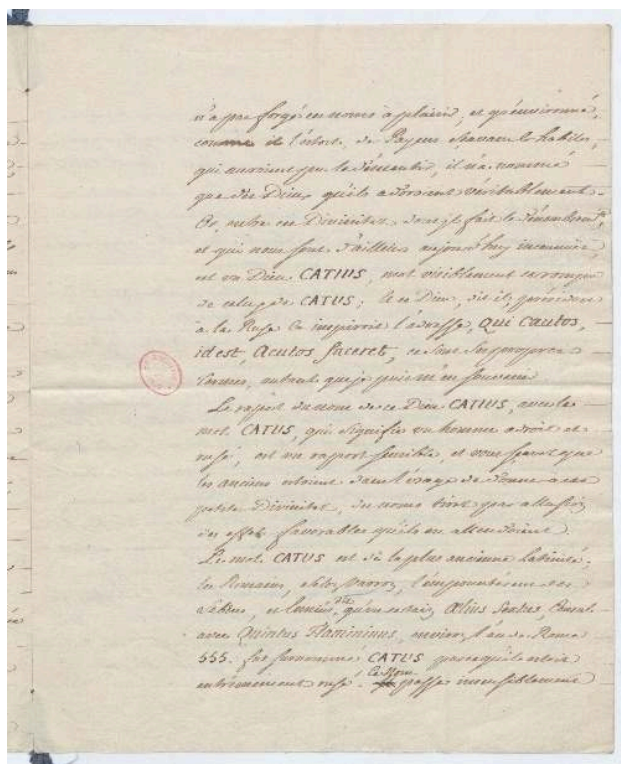 n'a pas forgé ces noms à plaisir, et qu'environné,
comme il l'étoit, de Payens sçavans et habiles,
qui auroient pu le démentir, il n'a nommé
que des Dieux qu'ils adoroient véritablement.
Or, entre ces Divinitez dont il fait le dénombrem.t
et qui nous sont d'ailleurs aujourd'huy inconnües,
est un Dieu CATIUS, mot visiblement corrompu
de celuy de CATUS; & ce Dieu, dit il, présidoit
à la Ruse & inspiroit l'adresse, qui cautos,
id est, acutos faceret, ce sont ses propres
termes, autant que je puis m'en souvenir
Le rapport du nom de ce Dieu CATIUS, avec le
mot CATUS, qui signifie un homme adroit et
rusé, est un rapport sensible, et vous sçavez que
les anciens étoient dans l'usage de donner à ces
petites Divinitez, des noms tirés par allusion
des effets favorables qu'ils en attendoient.
Le mot CATUS est de la plus ancienne latinité.
les Romains, selon Varron, l'empruntèrent des
Sabins, et Ennius dit qu'un certain Ælius Sextus, Consul
avec Quintus Flamininus, environ l'an de Rome
555. fut surnommé CATUS parce qu'il étoit
extrêmement rusé. Ce Nom passa insensiblement